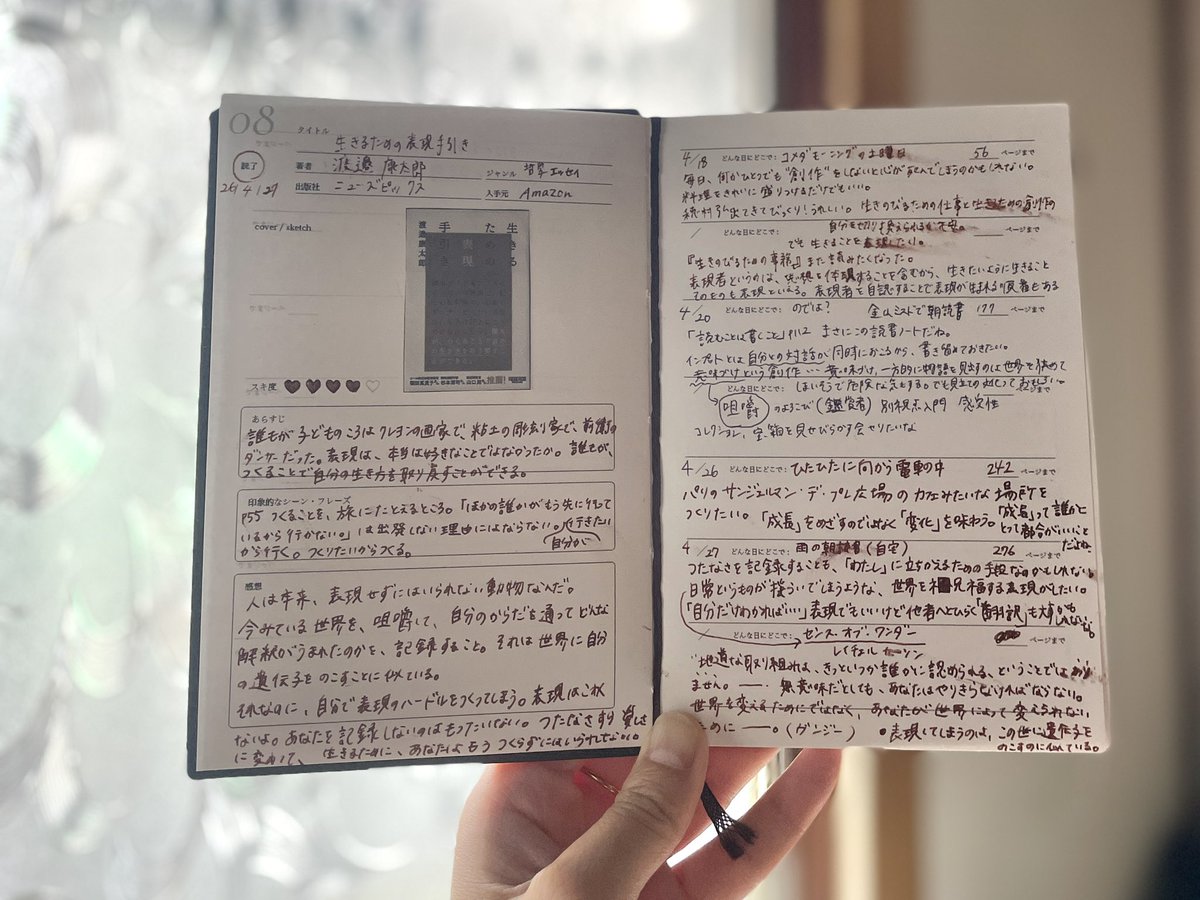 08
タイトル 生きるための表現手引き
読了
著者 渡邉康太郎 ジャンル 哲学エッセイ
26 4 1 29
出版社 ニューズピックス 入手元 Amazon
cover / sketch
生きる
た
の表現
手引き
渡邉康太郎
推薦!
スキ度
あらすじ
誰もが子どものころはクレヨンの画家で、粘土の彫刻家で、前衛の
ダンサーだった。表現は、本当は好きなことではなかったか。誰もが、
つくることで自分の生き方を取り戻すことができる。
印象的なシーン・フレーズ
P55 つくることを、旅にたとえるところ。「ほかの誰かがもう先に行って
いるから行かない。」は出発しない理由にはならない。行きたい
から行く。つくりたいからつくる。
(自分が
感想
人は本来、表現せずにはいられない動物なんだ。
今みている世界を、咀嚼して、自分のからだを通ってどんな
解釈がうまれたのかを、記録すること。それは世界に自分
の遺伝子をのこすことに似ている。
それなのに、自分で表現のハードルをつくってしまう。表現はこわ
ないよ。あなたを記録しないのはもったいない。つたなさすり
に変わって、生きるために、あなたはもうつくらずにはいられしない。
4/18 どんな日にどこで: コメダモーニングの土曜日 56 ページまで
毎日、何かひとつでも"創作"をしないと心が死んでしまうのかもしれない。
料理をきれいに盛りつけるだけでもいい。
穂村弘出てきてびっくり!うれしい。生きのびるための仕事と生きるための創作の
/ どんな日にどこで: 自分を切り換えられるかで空。 ページまで
でも生きることを表現したい。
『生きのびるための事務』また読みたくなった。
表現者というのは、思想を体現することを含むから、生きたいように生きること
そのものも表現といえる。表現者を自認することで表現が生まれる順番もある
4/20 どんな日にどこで: のでは? 金山ミストで朝読書 177 ページまで
「読むことは書くこと」P112 まさにこの読書ノートだね。
インプットとは自分との対話が同時におこるから、書き留めておきたい。
意味づけという創作…意味づけ、一方的に物語を見出すのは世界を狭めて
どんな日にどこで: はいそうで危険な気もするでも見立ての対しっておもしろい。
咀嚼 のよろこび(鑑賞者) 別視点入門 感受性
コレクション、宝箱を見せびらかす会やりたいな
4/26 どんな日にどこで: ひたひたに向かう電車の中 242 ページまで
パリのサンジェルマン・デ・プレ広場のカフェみたいな場所を
つくりたい。「成長」をめざすのではなく「変化」を味わう。「成長」って誰かに
とって都合がいいこと
だよね
4/27 どんな日にどこで: 雨の朝読書(自宅) 276 ページまで
つたなさを記録することも、「わたし」に立ちかえるための手段なのかもしれない
日常というものが揺らいでしまうような、世界を祝福する表現がしたい。
「自分だけわかればいい」表現でもいいけど他者へとひらく「翻訳」も大事かも
しれないな。
どんな日にどこで: センス・オブ・ワンダー ページまで
レイチェル カーソン
"地道な取り組みは、きっといつか誰かに認められる、ということではあり
ません。――. 無意味だとしても、あなたはやりきらなければならない。
世界を変えるためにではなく、あなたが世界によって変えられない
ために――。(ガンジー) ●表現してしまうのは、この世に遺伝子を
のこすのに似ている。